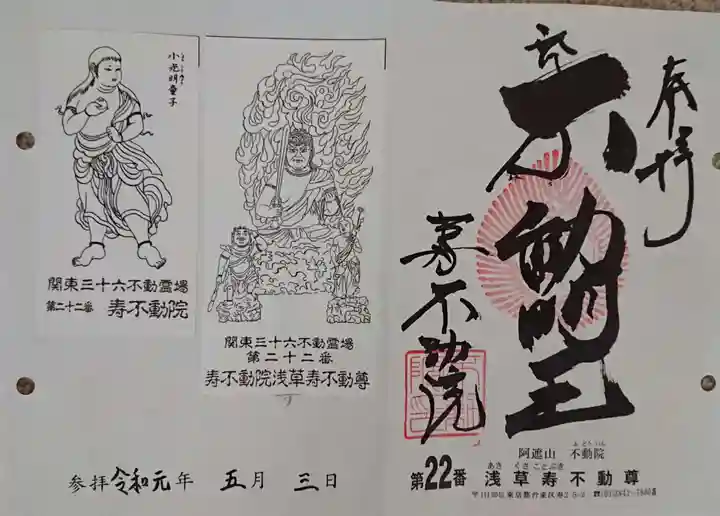 小光明童子
関東三十六不動霊場
第二十二番 寿不動院
関東三十六不動霊場
第二十二番
寿不動院浅草寿不動尊
参拝令和元年 五月 三日
奉拝
不動明王
寿不動院
阿遮山 不動院
あさ くさ ことぶき
第22番 浅草寿不動尊
東京都台東区寿